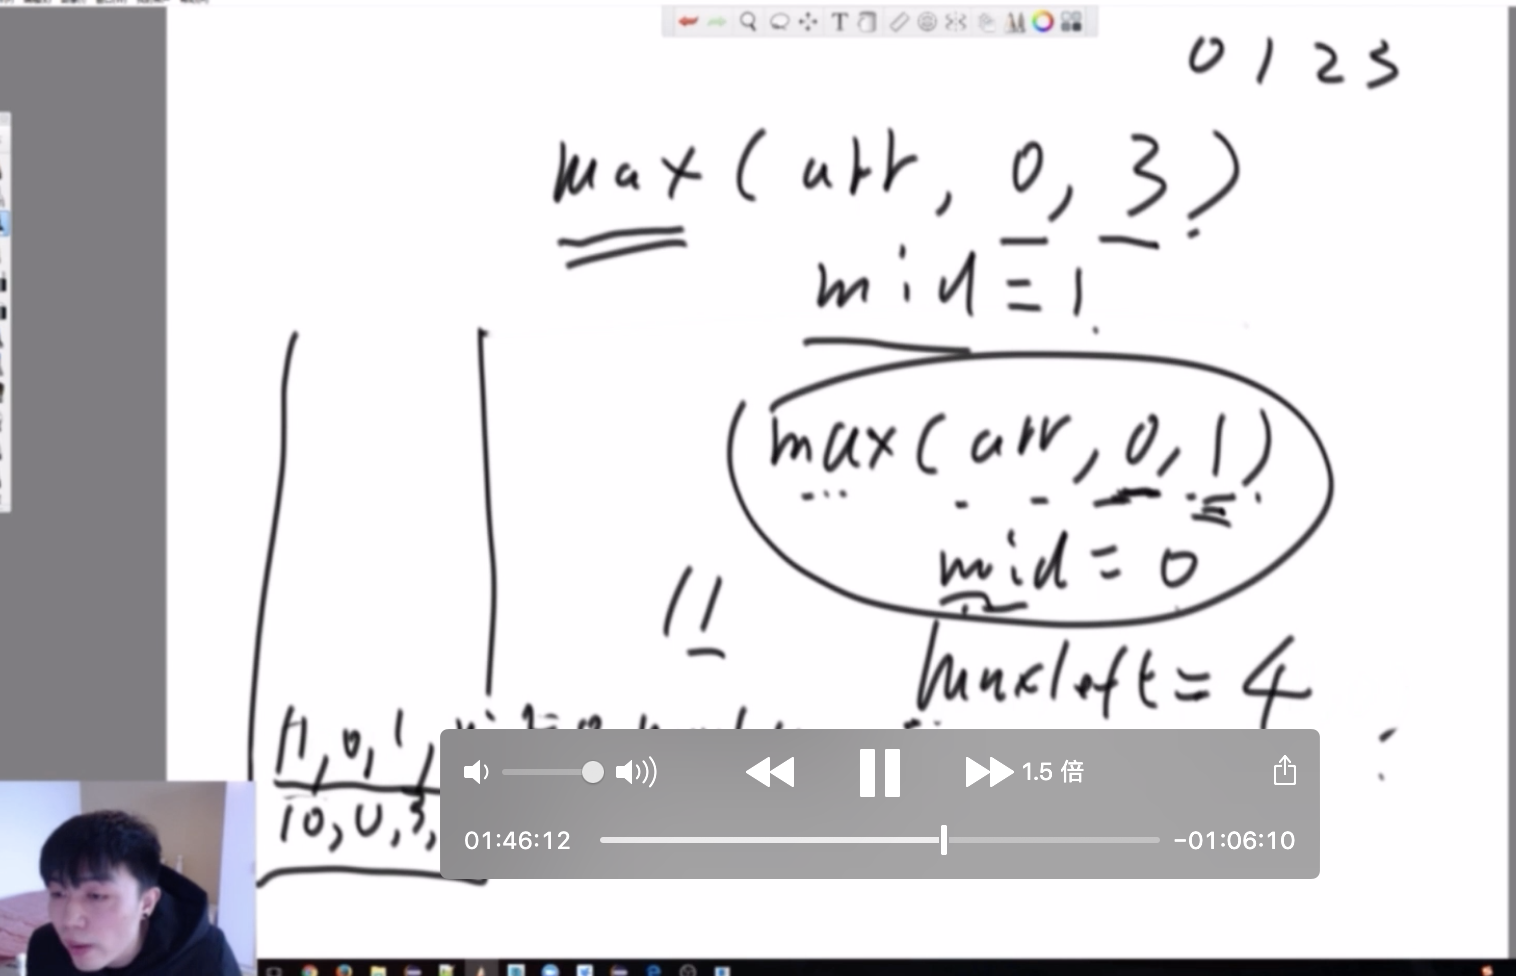 0 1 2 3
max ( arr , 0 , 3 )
mid = 1
max ( arr , 0 , 1 )
mid = 0
11
maxleft = 4
11, 0, 1,
10, 0, 3,
1.5 倍
01:46:12
-01:06:10